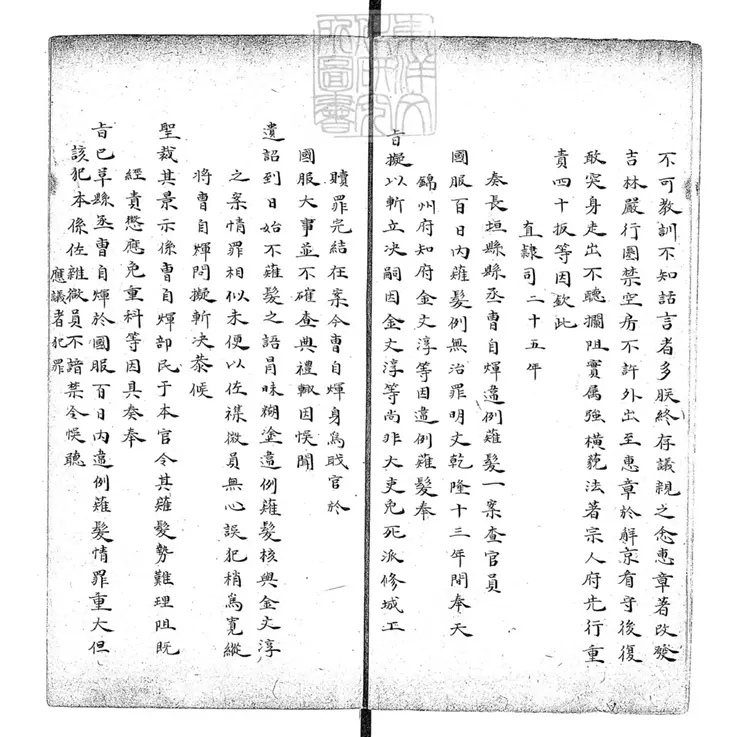 不可教訓不知話言者多朕終存議親之念惠章著改發
吉林嚴行圈禁空房不許外出至惠章於解京看守後復
敢突身走出不聽攔阻實屬強橫藐法著宗人府先行重
責四十扳等因欽此
直隸司二十五年
奏長垣縣縣丞曹自煇違例薙髮一案查官員
國服百日內薙髮例無治罪明文乾隆十三年間奉天
錦州府知府金文淳等因違例薙髮奉
旨擬以斬立決嗣因金文淳等尚非大吏免死派修城工
贖罪完結在案今曹自煇身爲職官於
國服大事並不確查典禮輙因悞聞
遺詔到日始不薙髮之語冐昧糊塗違例薙髮核與金文淳
之案情罪相似未便以佐襍微員無心誤犯稍爲寬縱
將曹自煇問擬斬決恭候
聖裁其景示係曹自煇部民于本官令其薙髮勢難理阻既
經責懲應免重科等因具奏奉
旨已革縣丞曹自煇於國服百日內違例薙髮情罪重大但
該犯本係佐雜微員不諳禁令悞聽
應議者犯罪
東洋文化研究所圖書